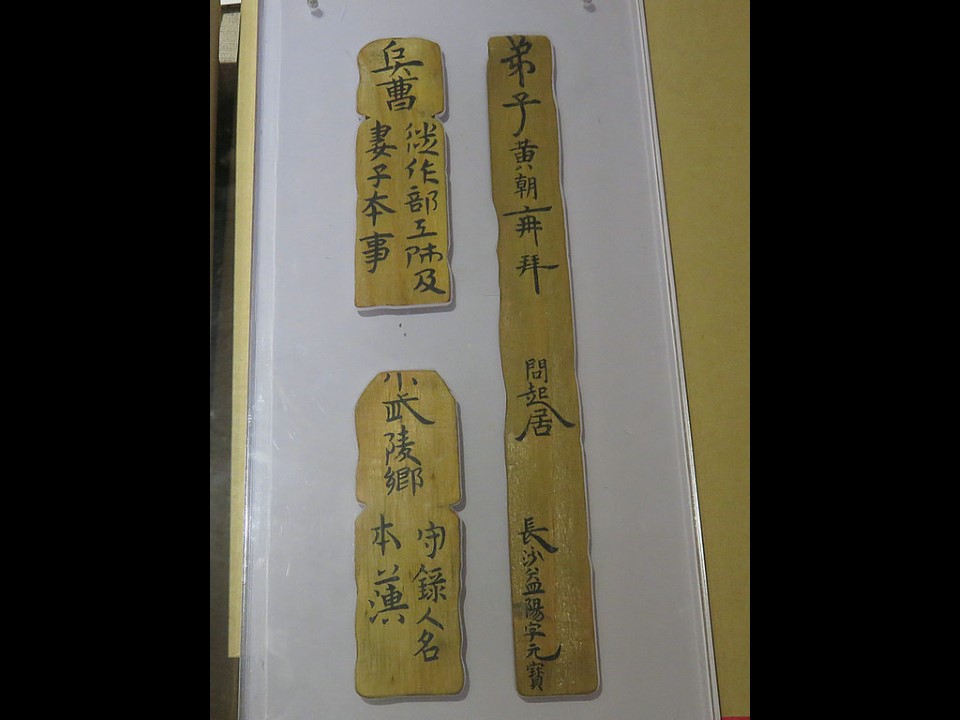 弟子黃朝再拜 問起居 長沙益陽字元寶
兵曹
徙作部工師及
妻子本事
小武陵鄉
守錄人名
本薄